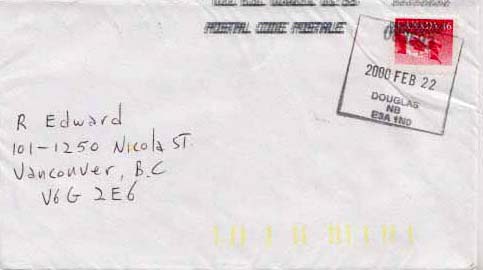 POSTAL CODE POSTAL
CANADA 46
2000 FEB 22
DOUGLAS
NB
E3A 1N0
R Edward
101-1250 Nicola ST.
Vancouver, B.C
V6G 2E6